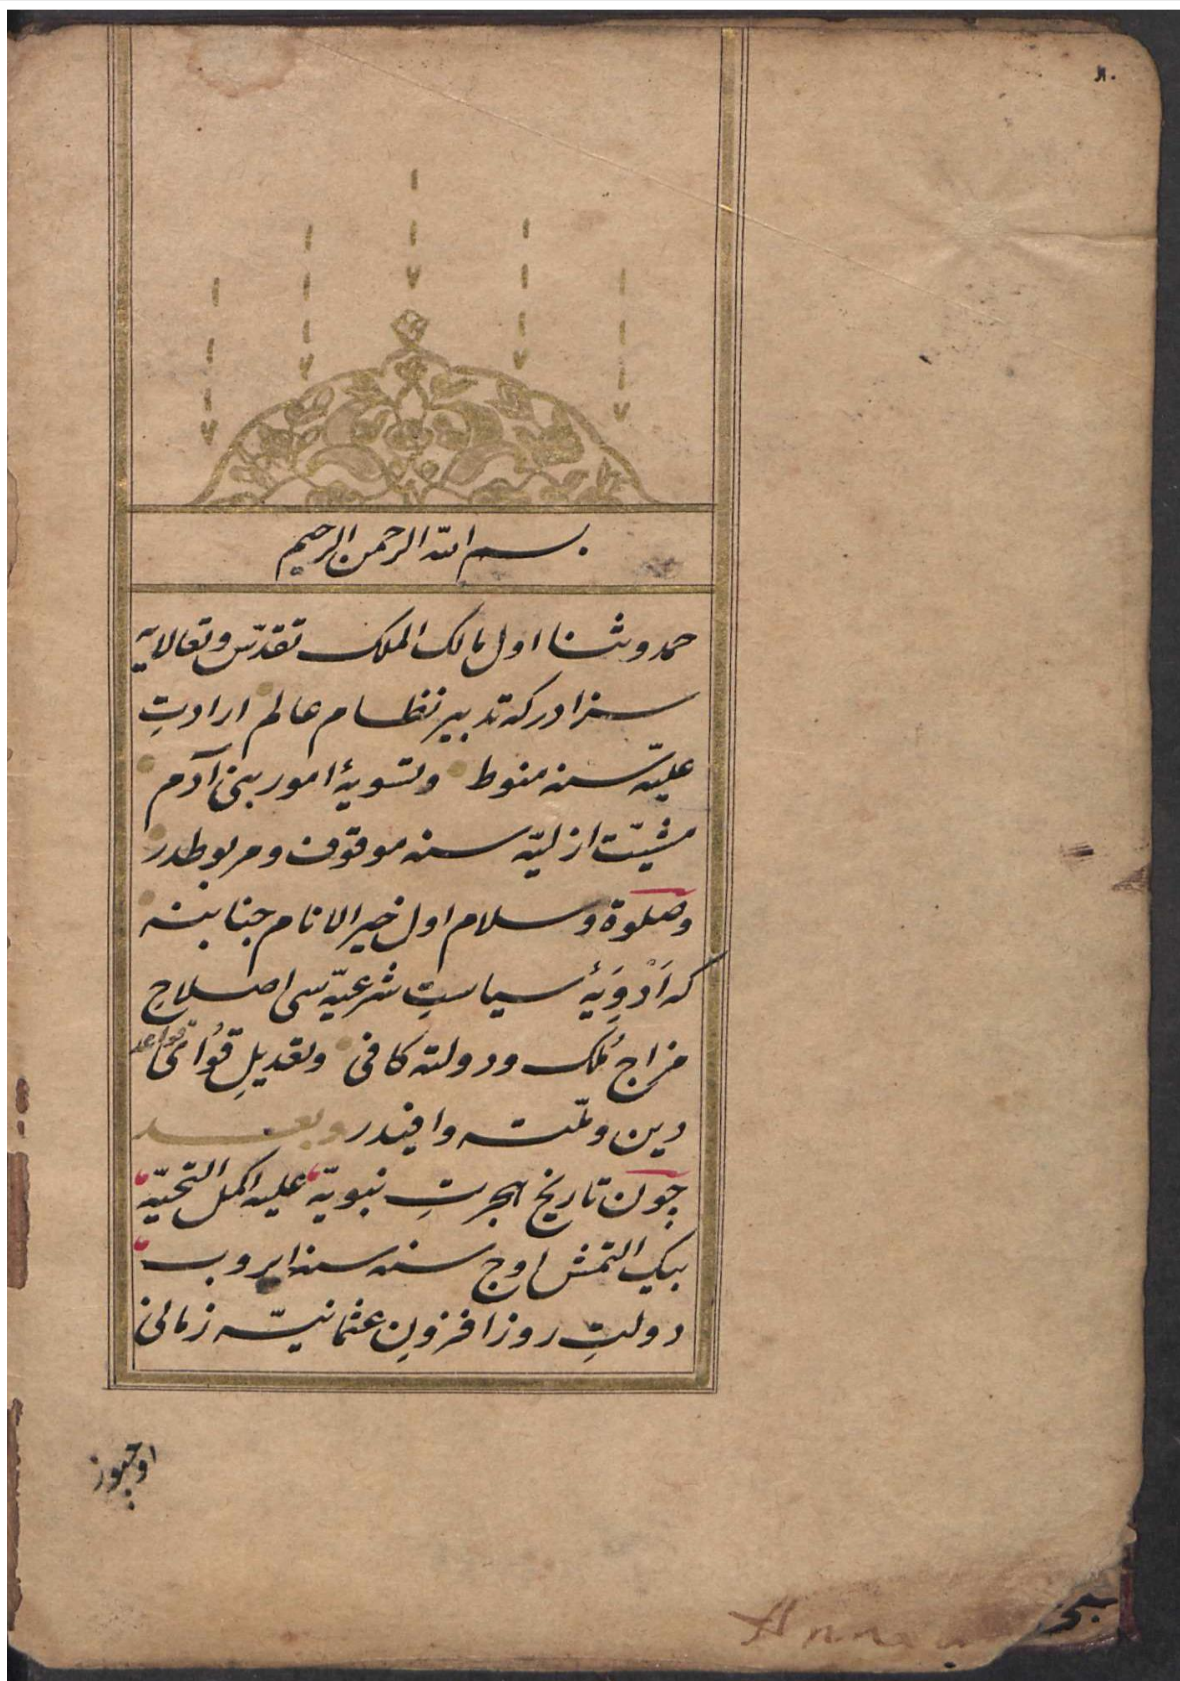 بسم الله الرحمن الرحيم
حمد و ثنا اول مالك الملك تقدّس و تعالایه
سزادر كه تدبیر نظام عالم ارادتِ
علیّه سنه منوط و تسویۀ امور بنی آدم
مشیّت ازلیّه سنه موقوف و مربوطدر
و صلوة و سلام اول خیر الانام جنابنه
كه اَدْوِیَۀ سیاستِ شرعیّه سی اصلاح
مزاج مُلك و دولته كافی و تعدیلِ قُوای قواعد
دین و ملّته وافیدر و بعد
چون تاریخ هجرتِ نبویّه علیه اكمل التحیّه
بیك التمش اوچ سنه سنه ایروب
دولتِ روز افزونِ عثمانیّه زمانی
اوچیوز
Anna